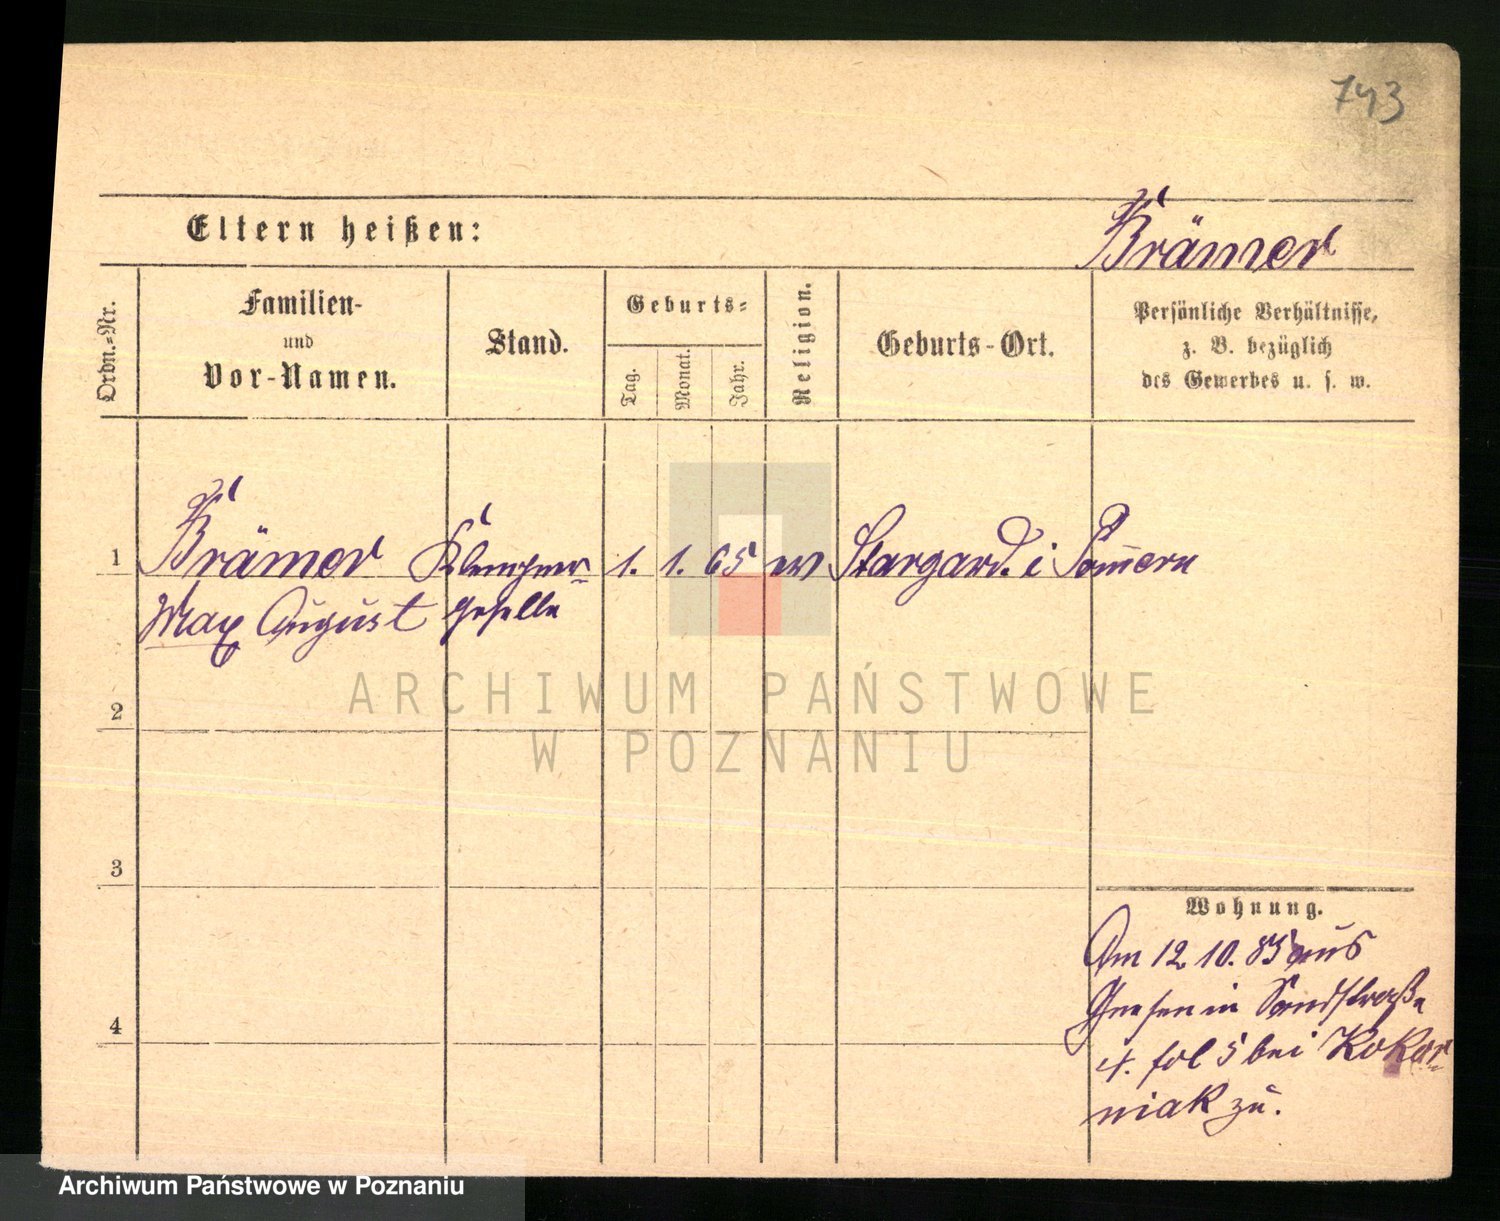 743
Eltern heißen: Krämer
Ordn.-Nr.
Familien-
und
Vor-Namen.
Stand.
Geburts-
Tag.
Monat.
Jahr.
Religion.
Geburts-Ort.
Persönliche Verhältnisse,
z. B. bezüglich
des Gewerbes u. s. w.
1 Krämer Klempner- 1. 1. 65 ev Stargard. i Pom̅ern
Max August Geselle
2
3
4
Wohnung.
Am 12. 10. 85 aus
Gnesen in Sandstraße
4. fol 5 bei Kokar-
niak zu.
ARCHIWUM PAŃSTWOWE
W POZNANIU
Archiwum Państwowe w Poznaniu